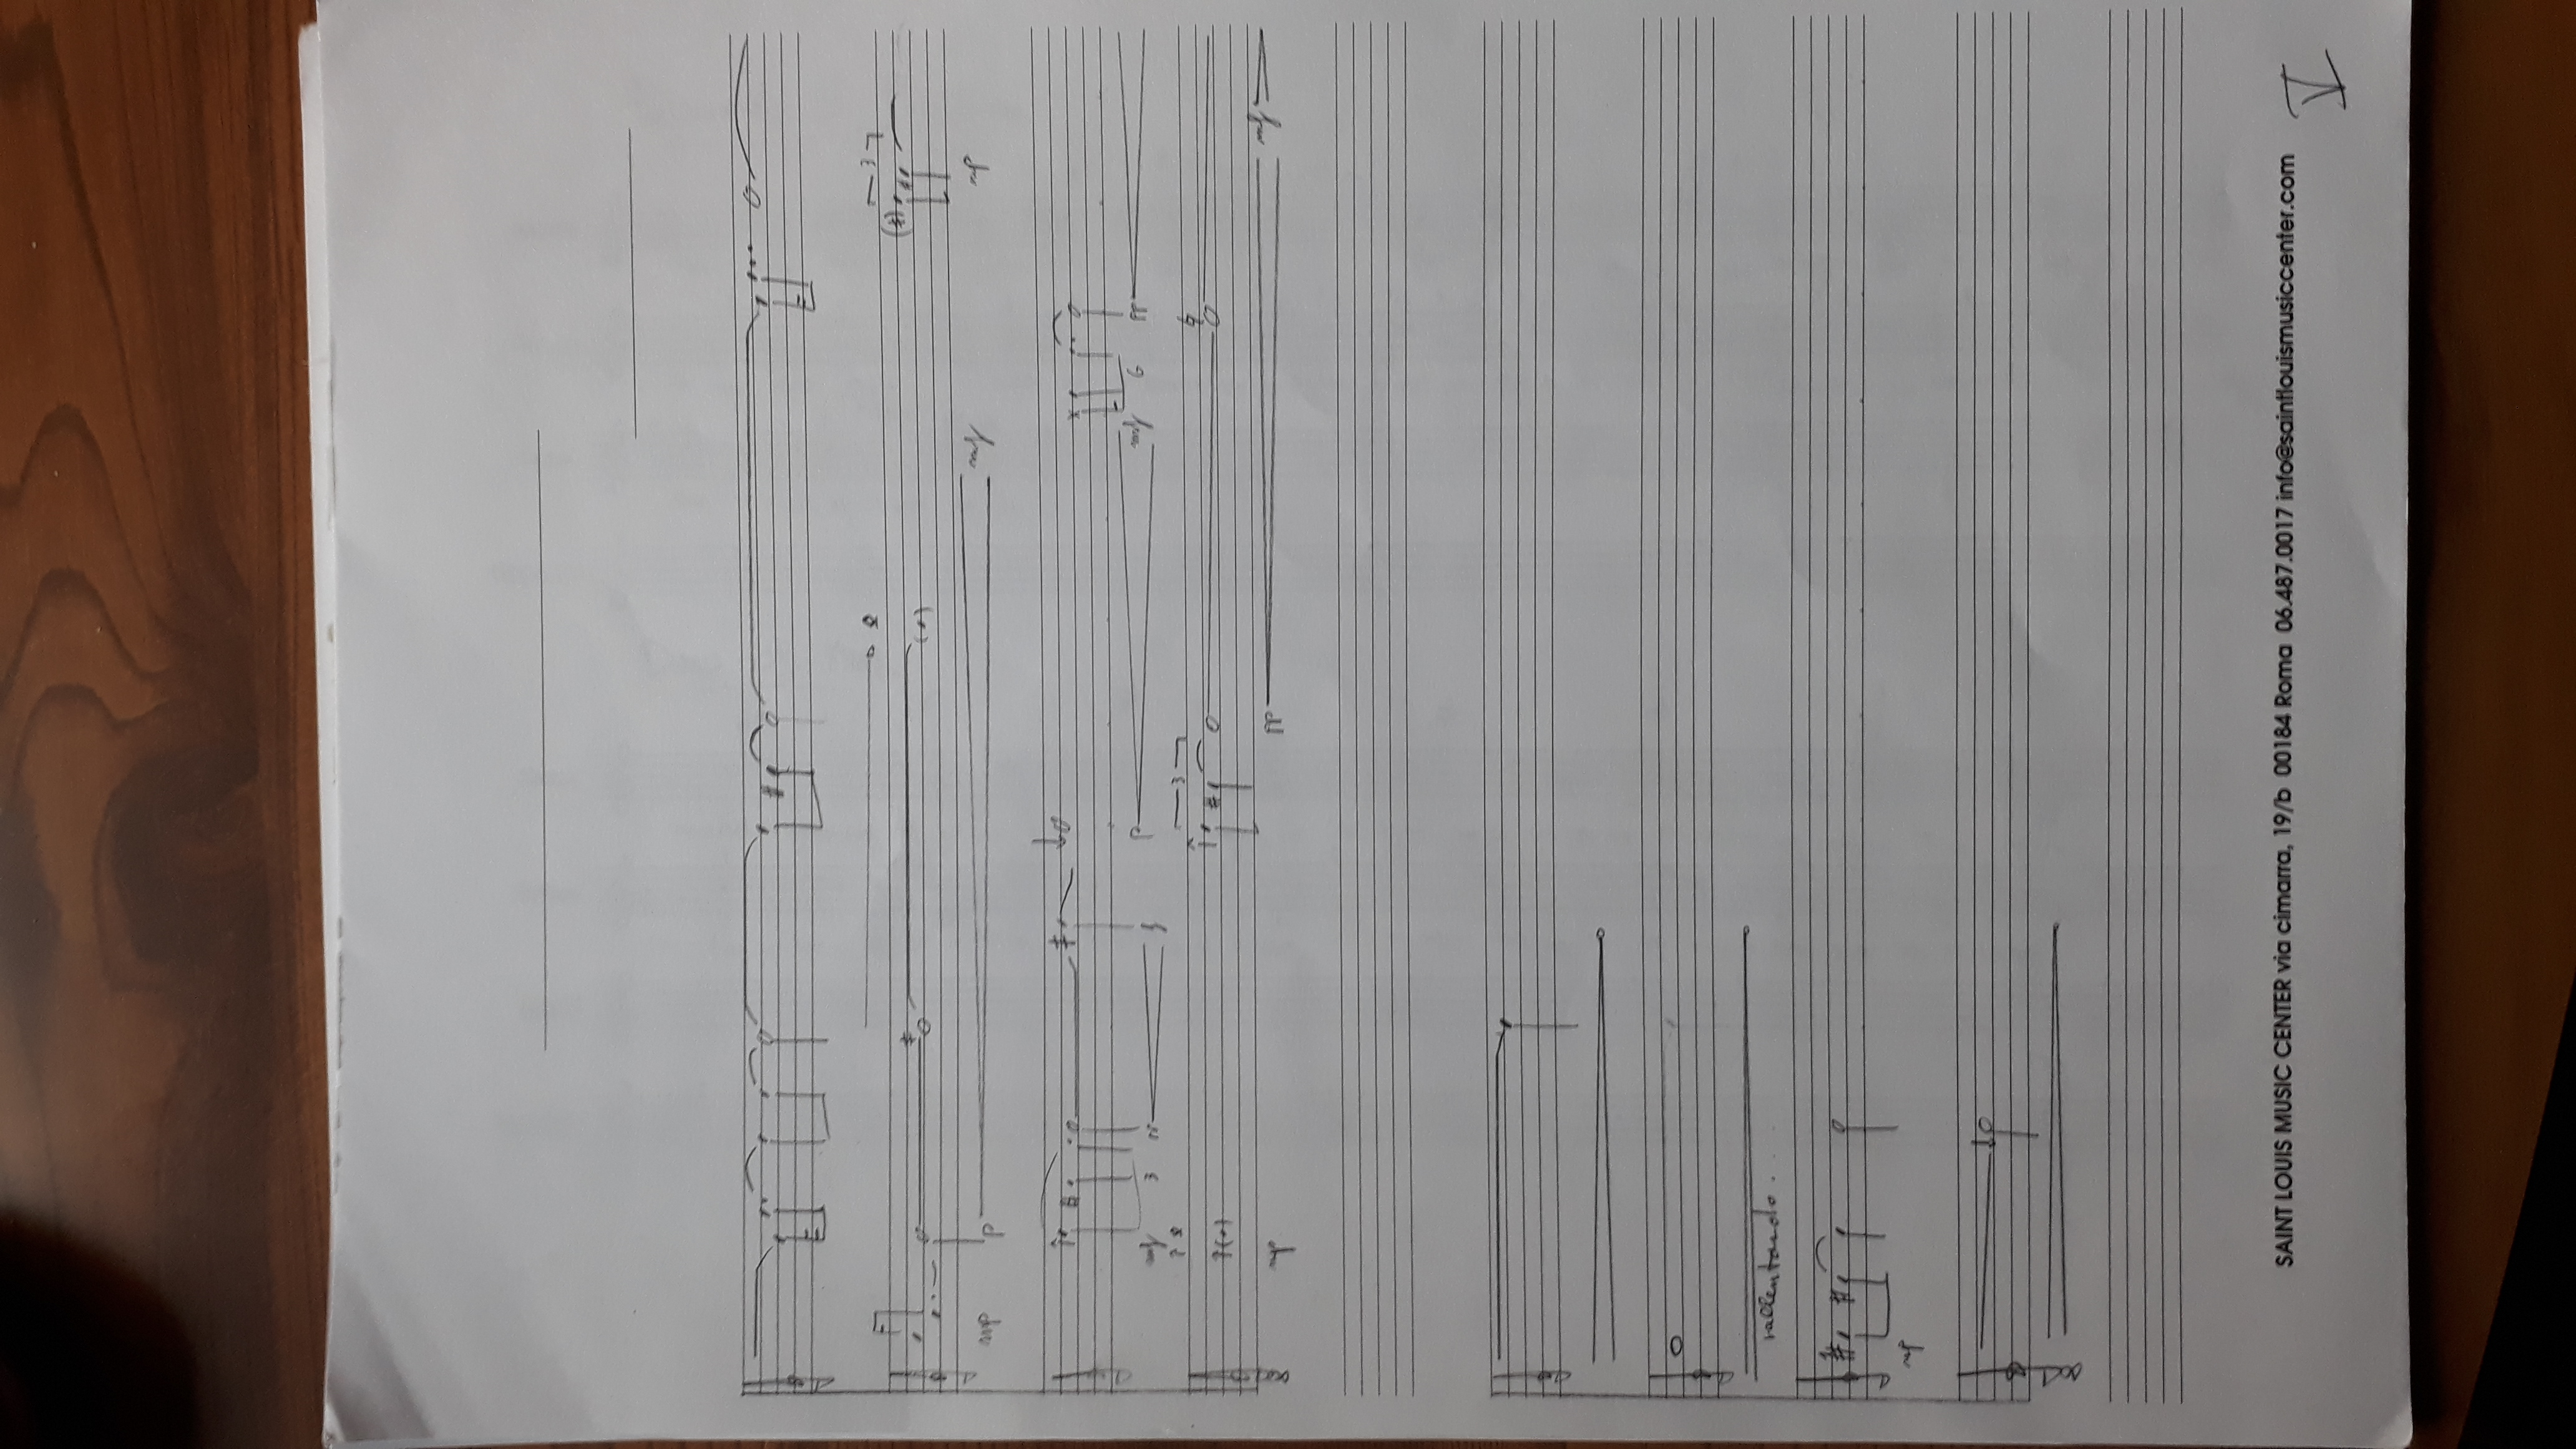 3
mp
p
mf
mp
mf
3
pp
f
p
mf
6
pp
3
mp
pp
mf
rallentando. . .
mp
SAINT LOUIS MUSIC CENTER via cimarra, 19/b 00184 Roma 06.487.0017 info@saintlouismusiccenter.com
V